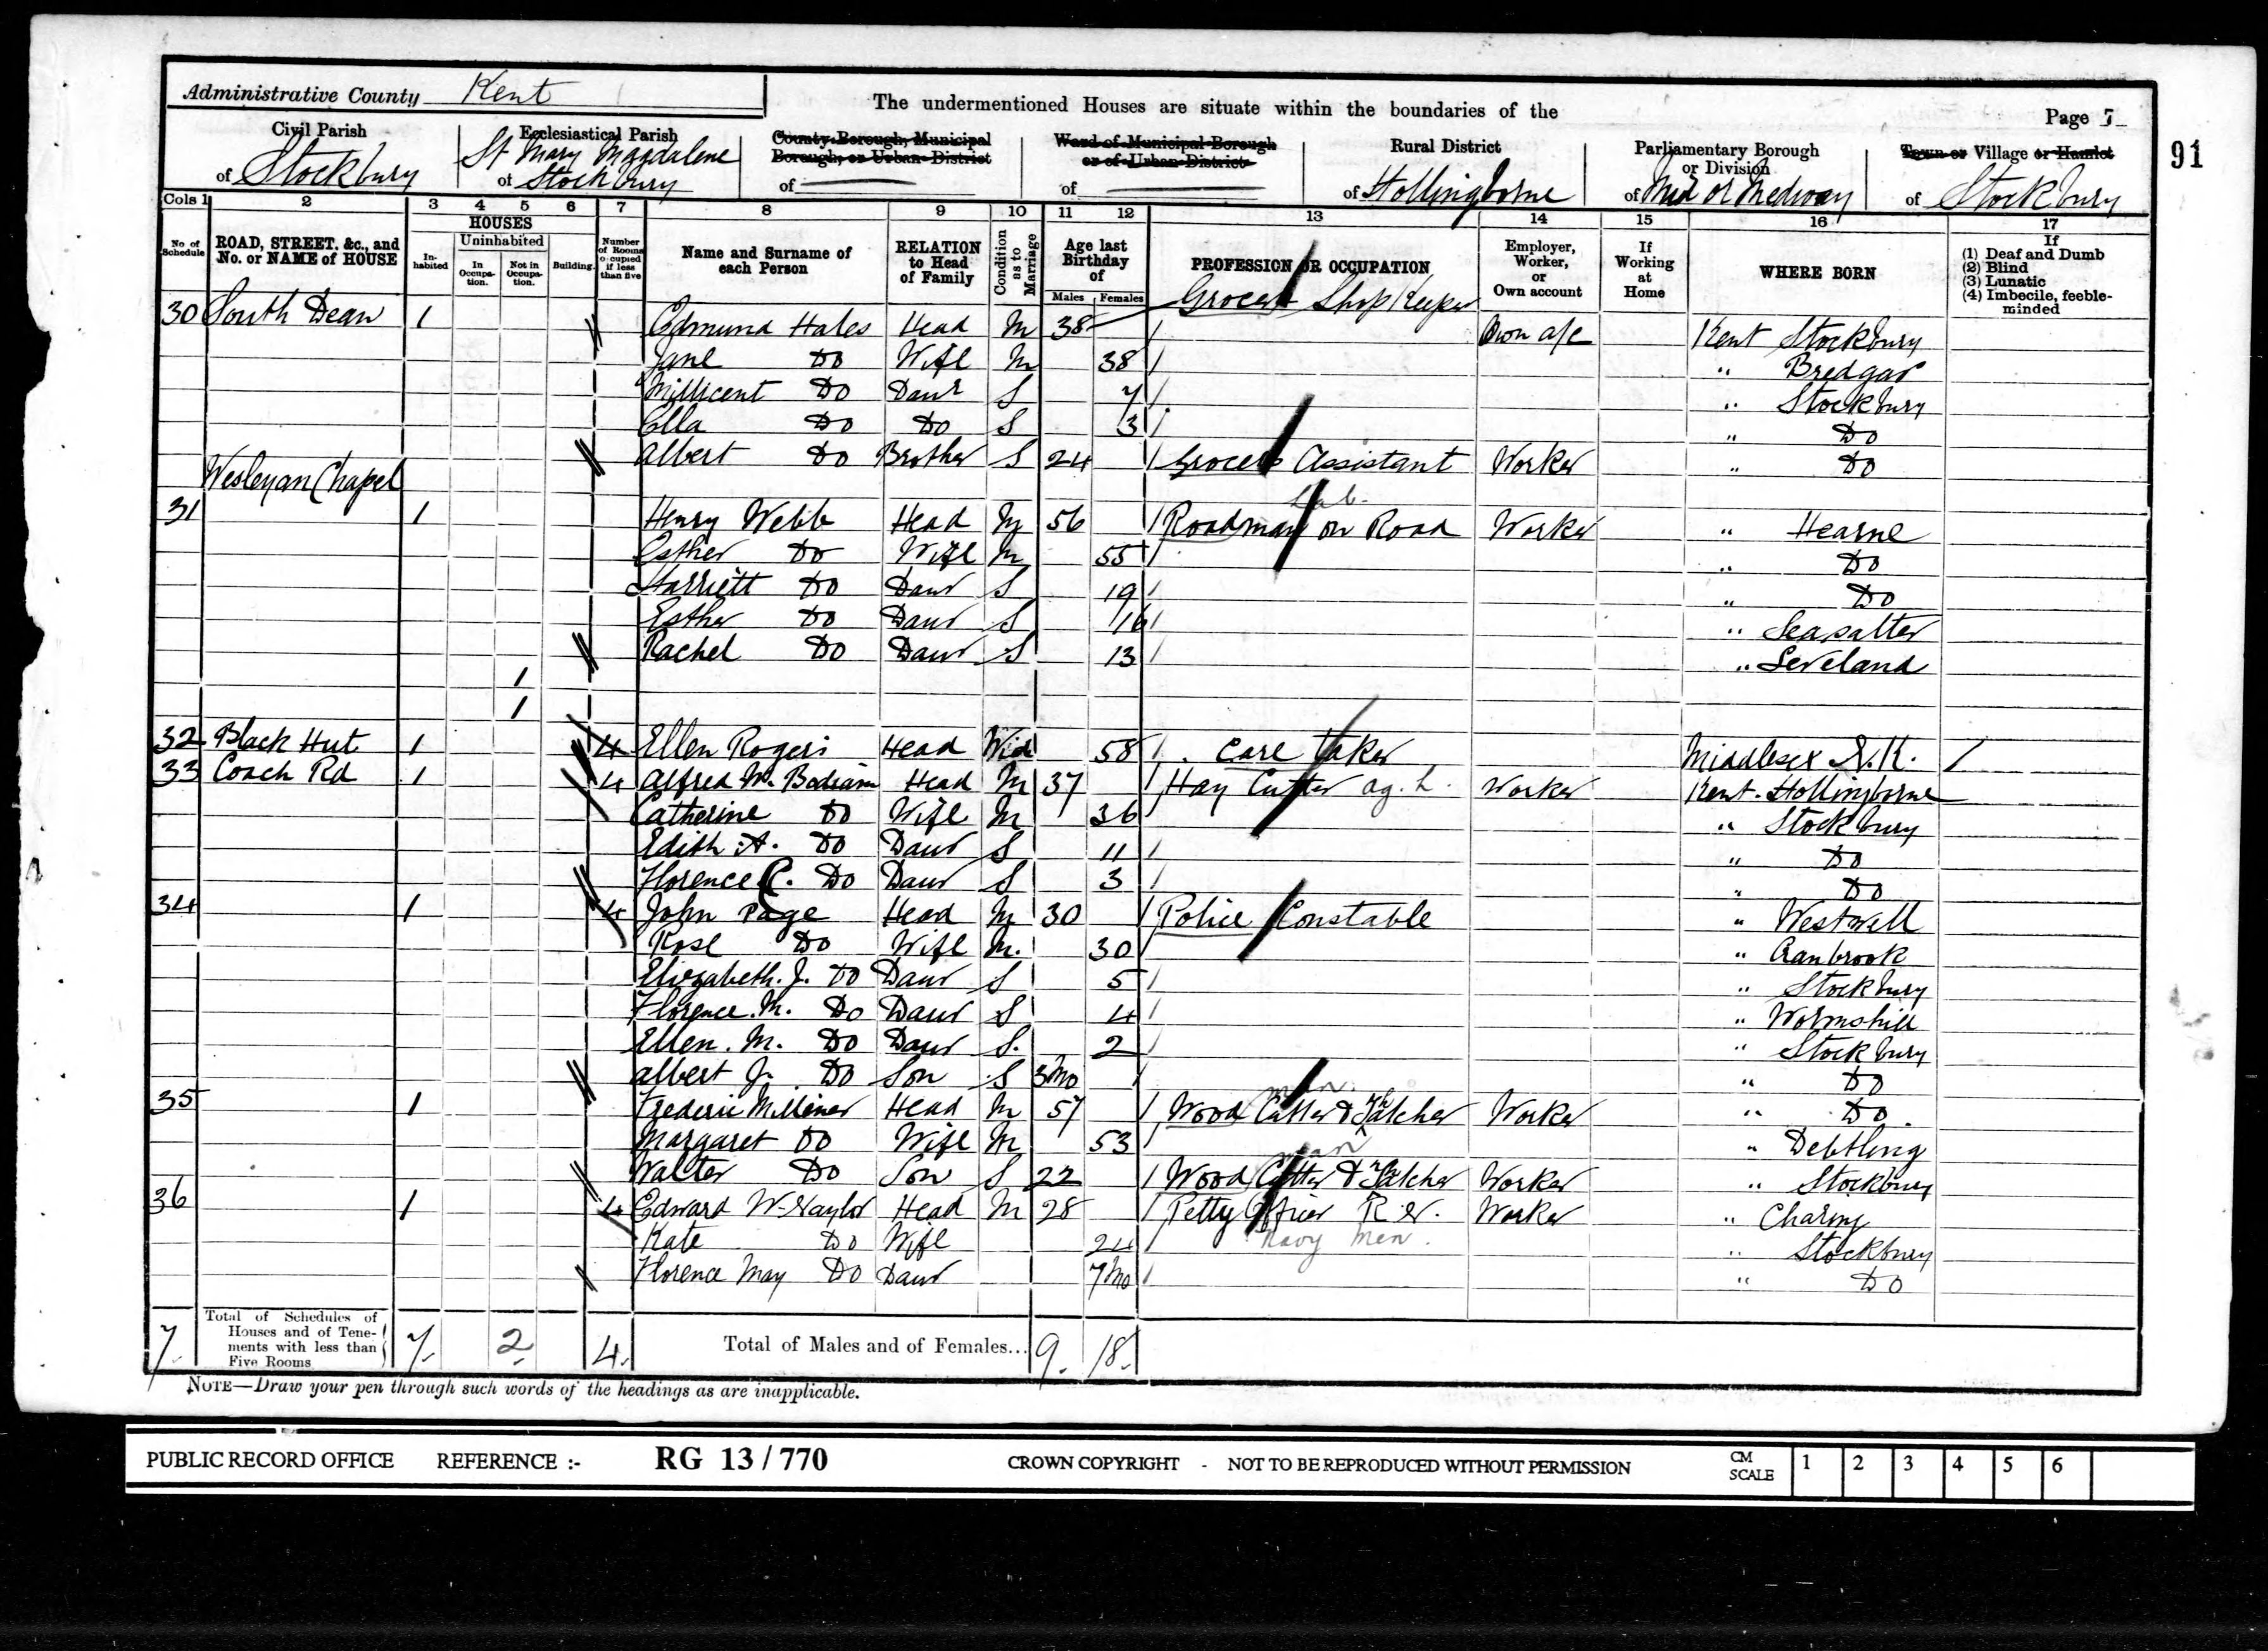 Administrative County Kent
The undermentioned Houses are situate within the boundaries of the
Page 7
91
Civil Parish of Stockbury
Ecclesiastical Parish of St Mary Magdalene Stockbury
County Borough, Municipal Borough, or Urban District of
Ward of Municipal Borough or of Urban District of
Rural District of Hollingborne
Parliamentary Borough or Division of Mid or Medway
Town or Village or Hamlet of Stockbury
Cols 1 2 3 4 5 6 7 8 9 10 11 12 13 14 15 16 17
No of Schedule
ROAD, STREET, &c., and No. or NAME of HOUSE
HOUSES
Inhabited
Uninhabited
In Occupation.
Not in Occupation.
Building
Number of Rooms occupied if less than five
Name and Surname of each Person
RELATION to Head of Family
Condition as to Marriage
Age last Birthday of
Males Females
PROFESSION OR OCCUPATION
Employer, Worker, or Own account
If Working at Home
WHERE BORN
If
(1) Deaf and Dumb
(2) Blind
(3) Lunatic
(4) Imbecile, feeble-minded
30 South Dean 1 Edmund Hales Head M 38 Grocer Shop Keeper Own a/c Kent Stockbury
Jane Do Wife M 38 " Bredgar
Millicent Do Daur S 7 " Stockbury
Ella Do Do S 3 " Do
Albert Do Brother S 24 Grocers Assistant Worker " Do
Wesleyan Chapel
31 1 Henry Webb Head M 56 Roadman on Road Lab. Worker " Hearne
Esther Do Wife M 55 " Do
Harriett Do Daur S 19 " Do
Esther Do Daur S 16 " Seasalter
Rachel Do Daur S 13 " Leveland
1
1
32 Black Hut 1 4 Ellen Rogers Head Wid 58 Care taker Middlesex N.K.
33 Coach Rd 1 4 Alfred M. Bodiam Head M 37 Hay Cutter ag. L. Worker Kent. Hollingborne
Catherine Do Wife M 36 " Stockbury
Edith A. Do Daur S 11 " Do
Florence C. Do Daur S 3 " Do
34 1 4 John Page Head M 30 Police Constable " Westwell
Rose Do Wife M. 30 " Cranbrook
Elizabeth. J. Do Daur S 5 " Stockbury
Florence. M. Do Daur S 4 " Wormshill
Ellen. M. Do Daur S. 2 " Stockbury
Albert J. Do Son S 3Mo " Do
35 1 Frederic Milliner Head M 57 Wood Cutter & Thatcher man Worker " Do.
Margaret Do Wife M 53 " Debtling
Walter Do Son S 22 Wood Cutter & Thatcher man Worker " Stockbury
36 1 4 Edward W. Naylor Head M 28 Petty Officer R.N. Worker " Charing
Kate Do Wife 24 Navy Men. " Stockbury
Florence May Do Daur 7Mo " Do
7. Total of Schedules of Houses and of Tenements with less than Five Rooms 7. 2. 4. Total of Males and of Females... 9. 18.
NOTE—Draw your pen through such words of the headings as are inapplicable.
PUBLIC RECORD OFFICE REFERENCE :- RG 13 / 770 CROWN COPYRIGHT - NOT TO BE REPRODUCED WITHOUT PERMISSION CM SCALE 1 2 3 4 5 6